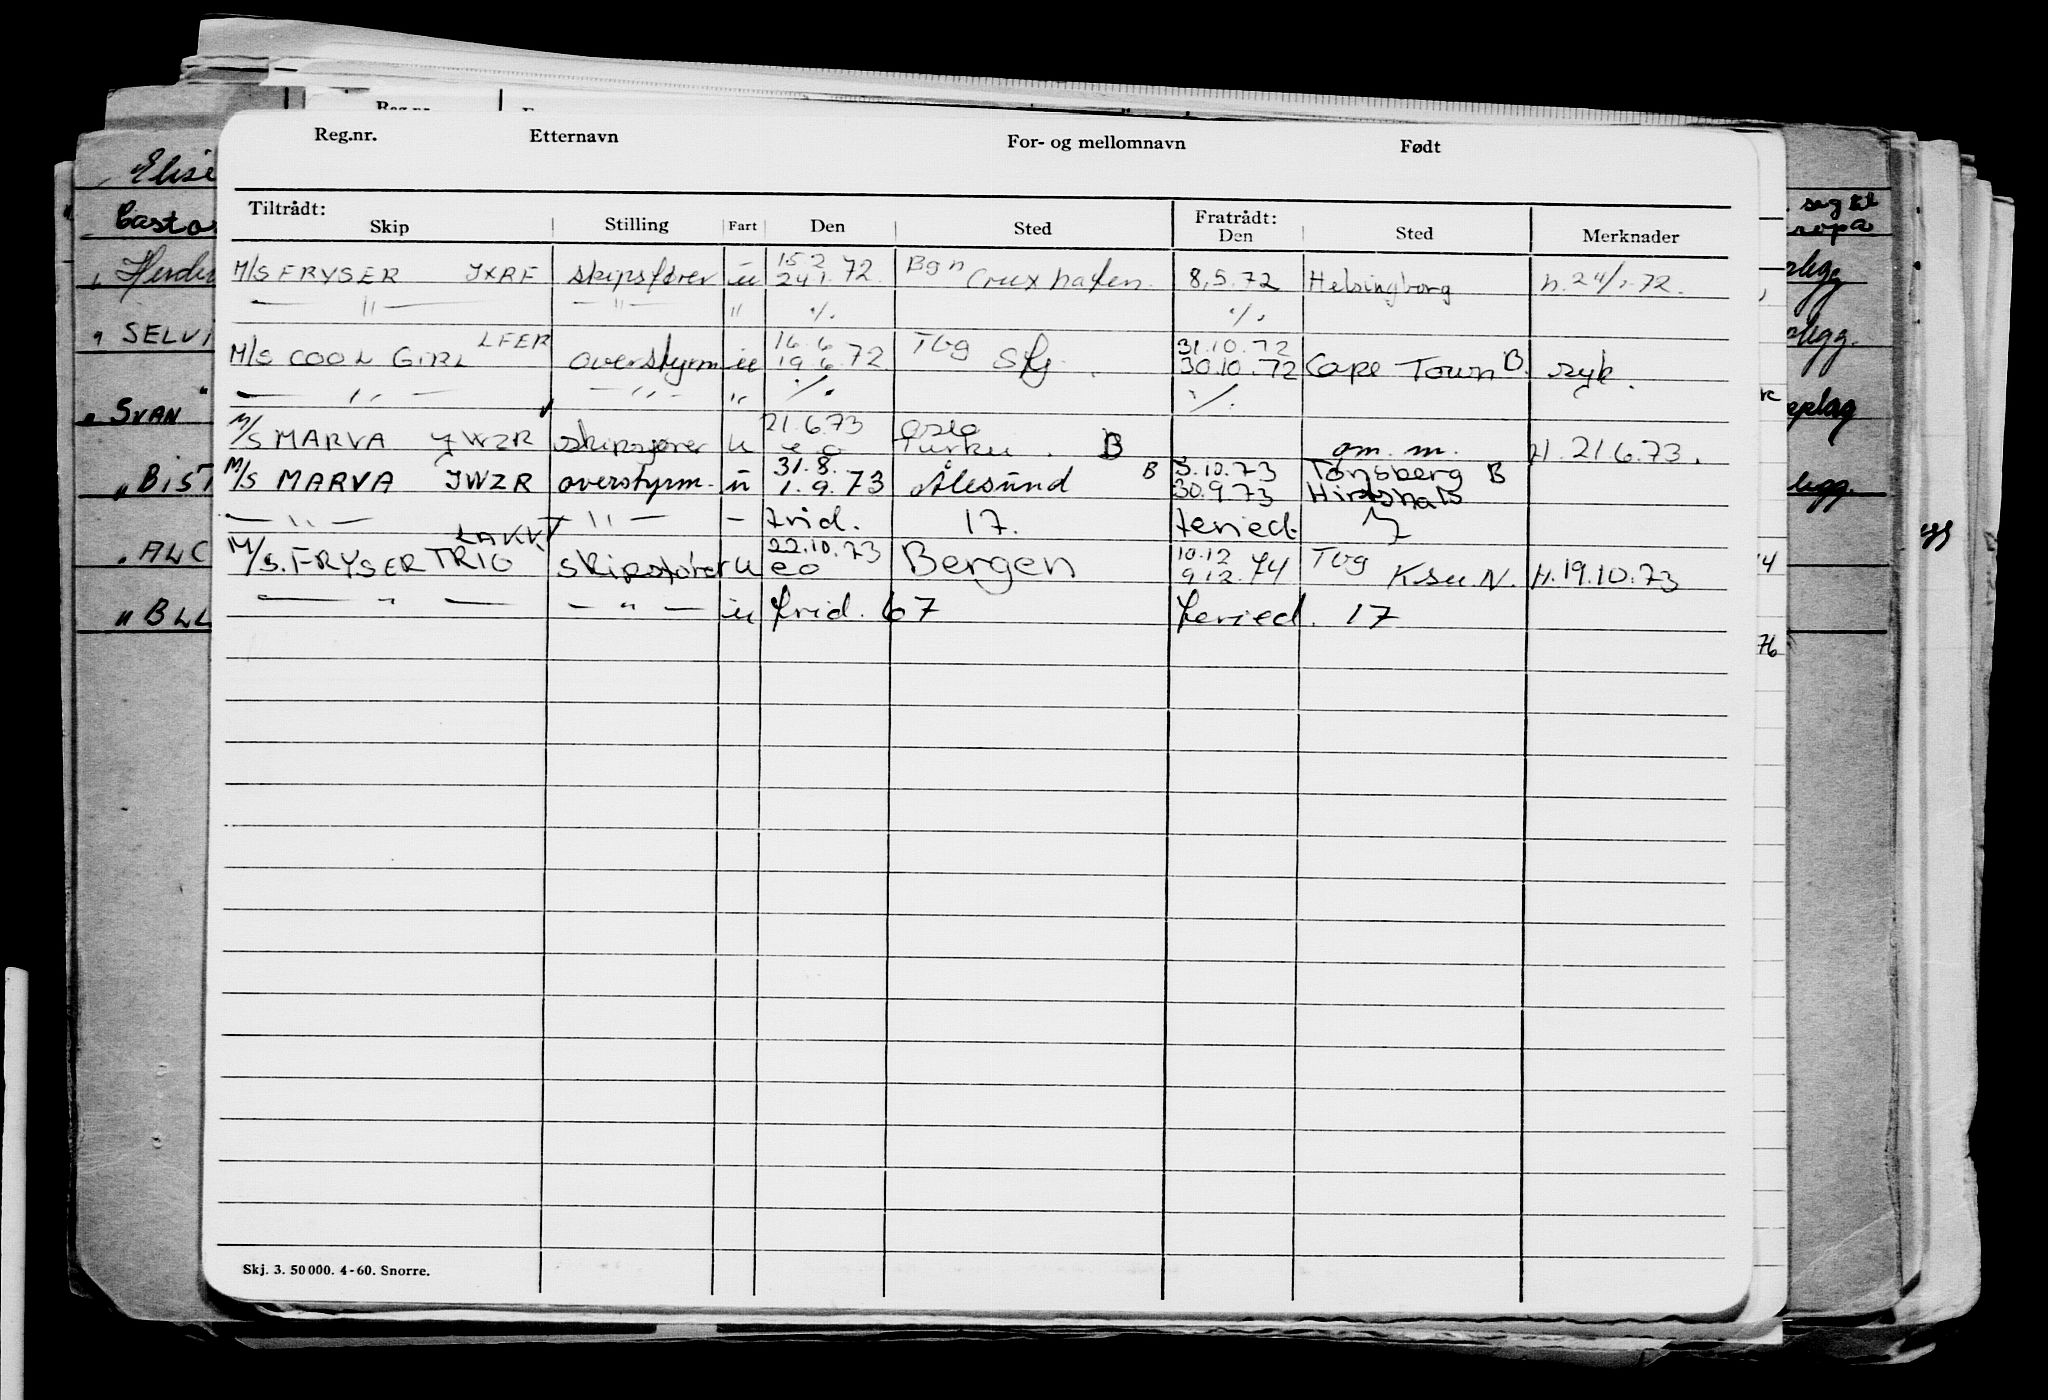 Reg.nr. Etternavn For- og mellomnavn Født
Tiltrådt: Fratrådt:
Skip Stilling Fart Den Sted Den Sted Merknader
15.2 Bgn
M/S FRYSER JXRF skipsfører u 24.1.72 Cuxhafen. 8.5.72 Helsingborg h. 24/1-72.
— " — — " — " ./. ./.
LFER 16.6 Tbg 31.10.72
M/S COOL GIRL overstyrm u 19.6.72 30.10.72 Cape Town B. syk.
— " — — " — " ./. ./.
21.6.73 Oslo
M/S MARVA JWZR skipsfører u e o Turku. B om. m. H. 21.6.73.
31.8. B 5.10.73 Tønsberg B
M/S MARVA JWZR overstyrm. u 1.9.73 Ålesund 30.9.73 Hirtshals
— " — — " — — frid. 17. feried. 7
LAKK 22.10.73 10.12 Tbg
M/S. FRYSERTRIO skipsfører u eo Bergen 9.12.74 Ksu.N. H. 19.10.73
— " — — " — u frid. 67 feried. 17
Skj. 3. 50000. 4-60. Snorre.
Elise
Castor
SELVI
SVAN
BIST
ALC
BLL